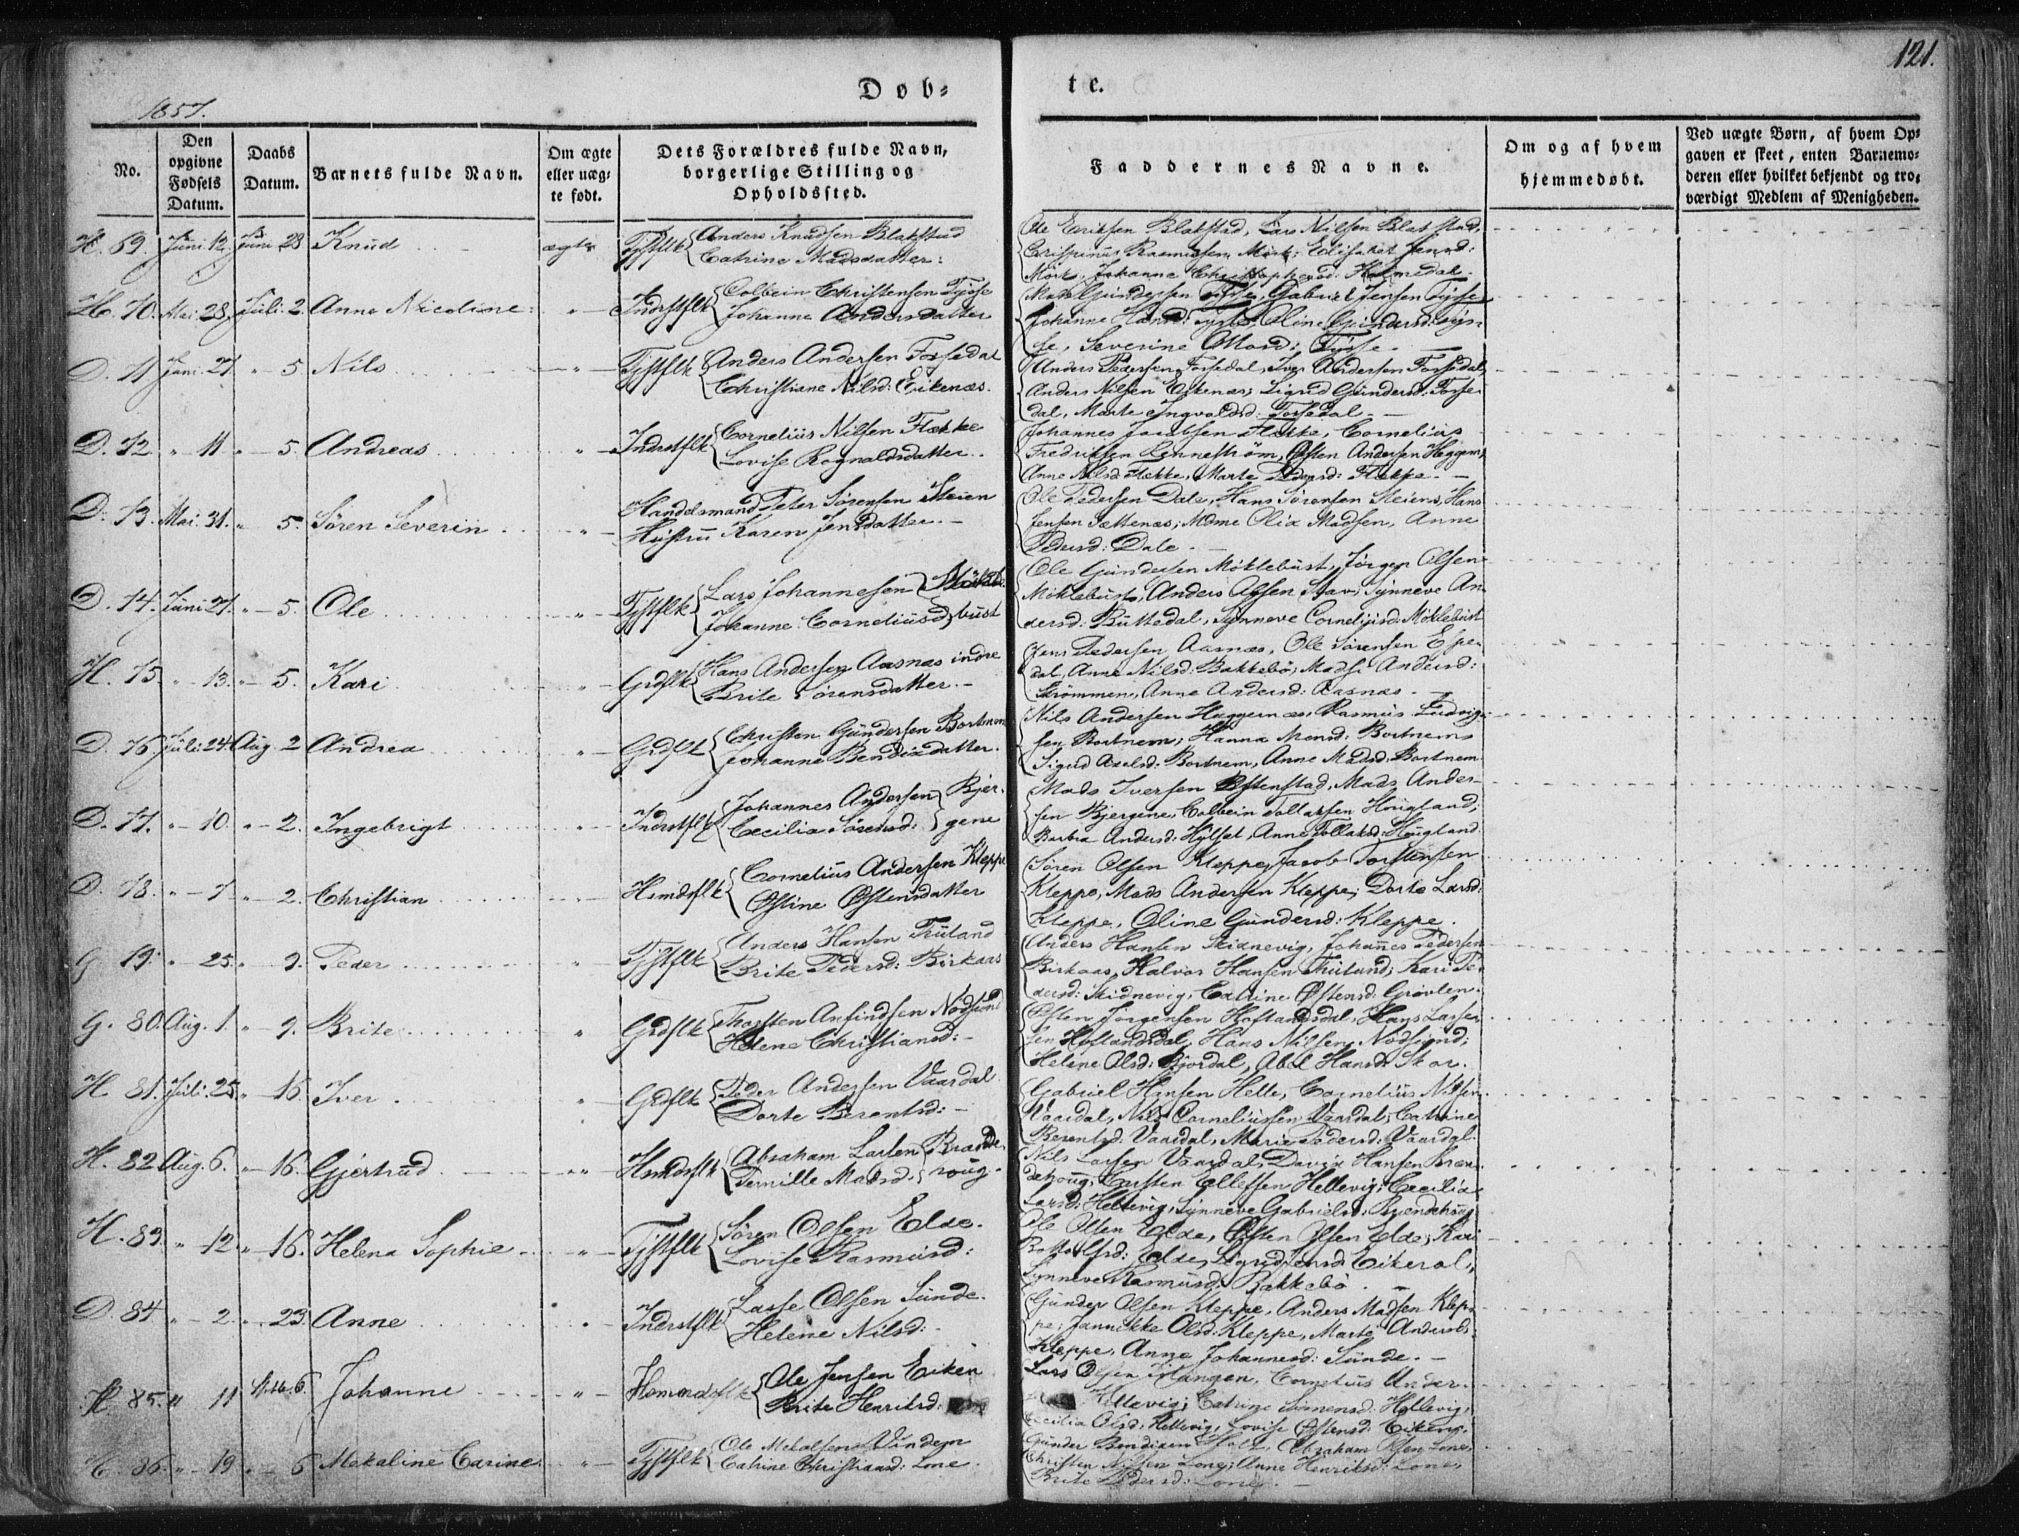 121.
Døb-
te.
1857.
No.
Den opgivne Fødsels Datum.
Daabs Datum.
Barnets fulde Navn.
Om ægte eller uæg-te født.
Dets Forældres fulde Navn, borgerlige Stilling og Opholdssted.
Faddernes Navne.
Om og af hvem hjemmedøbt.
Ved uægte Børn, af hvem Op-gaven er skeet, enten Barnemo-deren eller hvilket bekjendt og tro-værdigt Medlem af Menigheden.
H. 69. Juni 12. Juni 28 Knud ægte Tjstflk Anders Knudsen Blakstad
Catrine Madsdatter:
Ole Eriksen Blakstad, Lars Nilsen Blakstad,
Crispinus Rasmussen Mörk; Elisabet
Mörk, Johanne Holmedal
H. 70. Mai. 28. Juli. 2. Anne Nicoline " Indrstflk Colbein Christensen Tysse
Johanne Andersdatter
Gundersen Tysse, Gabriel Jensen Tysse
Johanne Hansd: Tysse, Oline Gundersd: Tys-
se, Severine Tysse
D. 71 Juni. 27 " 5 Nils " Tjstflk Anders Andersen Fossedal
Christiane Nilsd: Eikenæs.
Anders Pedersen Fossedal, Iver Andersen Fossedal,
Anders Nilsen Eikenæs; Sigrid Gundersd: Fosse-
dal, Marte Ingvaldsd: Fossedal.
D. 72 " 11 " 5. Andreas " Indrstflk Cornelius Nilsen Flekke
Lovise Rognaldsdatter.
Johannes Jacobsen Flekke, Cornelius
Fredriksen Lennestrøm, Østen Andersen Heggem,
Anne Nilsd: Flekke, Marte Pedersd: Flekke.
D. 73. Mai. 31. " 5. Sören Severin " Handelsmand Peter Sørensen Steien
Hustru Karen Jensdatter.
Ole Pedersen Dale, Hans Sörensen Steien, Hans
Jensen Sættenæs; Mdme Olia Madsen, Anne
Pedersd: Dale.
D. 74. Juni 27. " 5. Ole " Tjstflk Lars Johannesen
Johanne Corneliusd: bust
Ole Gundersen Möklebust, Jörgen Olsen
Möklebust, Anders Olsen Stav; Synneve An-
dersd: Buttedal, Synneve Corneliusd: Möklebust
H. 75 " 13. " 5. Kari " Grdflk Hans Andersen Aasnæs indre
Brite Sörensdatter.
Jens Pedersen Aasnæs, Ole Sørensen Espe-
dal, Anne Nilsd: Bakkebö; Madse Andersd:
Strömmen, Anne Andersd: Aasnæs.
D. 76. Juli. 24. Aug 2 Andrea " Grdflk Christen Gundersen Bortnem
Johanne Bendixdatter.
Nils Andersen Haggernæs, Rasmus Ludvig-
sen Bortnem; Hanna Monsd: Bortnem
Sigrid Axelsd: Bortnem, Anne Madsd: Bortnem
D. 77. " 10. " 2. Ingebrigt " Indrstflk Johannes Andersen
Cecilia Sörensd: Bjer-
gene
Mads Iversen Østenstad, Mads Ander-
sen Bjergene, Colbein Tollaksen Hougland,
Barbra Andersd: Hylset, Anne Tollaksd: Hougland
D. 78. " 7 " 2. Christian " Hsmdsflk Cornelius Andersen Kleppe
Østine Østensdatter
Sören Olsen Kleppe, Jacob Torstensen
Kleppe, Mads Andersen Kleppe; Dorte Larsd:
Kleppe, Oline Gundersd: Kleppe.
G. 79. " 25. " 9. Peder " Tjstflk Anders Hansen Fruland
Brite Pedersd: Birkaas
Anders Hansen Skidnevig, Johannes Pedersen
Birkaas, Halvor Hansen Fruland; Kari Pe-
dersd: Skidnevig, Catrine Østensd: Grövlen.
G. 80. Aug. 1. " 9. Brite " Grdflk Thorsten Anfindsen Nödsund
Helene Christiansd:
Østen Jörgensen Hoflandsdal, Hans Lasse-
sen Hoflandsdal, Hans Nilsen Nödsund;
Helene Olsd: Bjordal, Abel Hansd: Skor.
H. 81. Juli. 25 " 16. Iver " Grdflk Peder Andersen Vaardal
Dorte Berentsd:
Gabriel Hansen Helle, Cornelius Nilsen
Vaardal, Nils Corneliussen Vaardal; Catrine
Berentsd: Vaardal, Marie Pedersd: Vaardal.
H. 82 Aug. 6. " 16. Gjertrud " Hsmdsflk Abraham Larsen
Pernille Madsd:
Nils Larsen Vaardal, David Hansen Bren-
dehoug, Carsten Ellefsen Hellevig; Cecilia
Larsd: Hellevig, Synneve Gabrielsd: Brendehoug
H. 83. " 12. " 16. Helena Sophie " Tjstflk Sören Olsen Elde.
Lovise Rasmusd:
Ole Olsen Elde, Østen Olsen Elde; Kari
Elde, Sigrid Jensd:
Synneve Rasmusd: Bakkebö
D. 84 " 2 " 23. Anne " Indrstflk Lasse Olsen Sunde.
Helene Nilsd:
Gunder Olsen Kleppe, Anders Madsen Klep-
pe; Jannikke Olsd: Kleppe, Marte Andersd:
Kleppe, Anne Johannesd: Sunde.
H. 85. " 11 6. Johanne " Ole Jensen Eiken
Brite Henriksd:
Lars Olsen Cornelius Ander-
Hellevig; Catrine Simensd: Hellevig,
Cecilia Olsd: Hellevig, Lovise Østensd:
H. 86. " 19 " 6 Mekaline Carine " Tjstflk Ole
Catrine Christiansd: Lone.
Gunder Bendixen Abraham Olsen Lone,
Christen Nilsen Lone; Anne Henriksd: Lone,
Brite Pedersd: Lone.